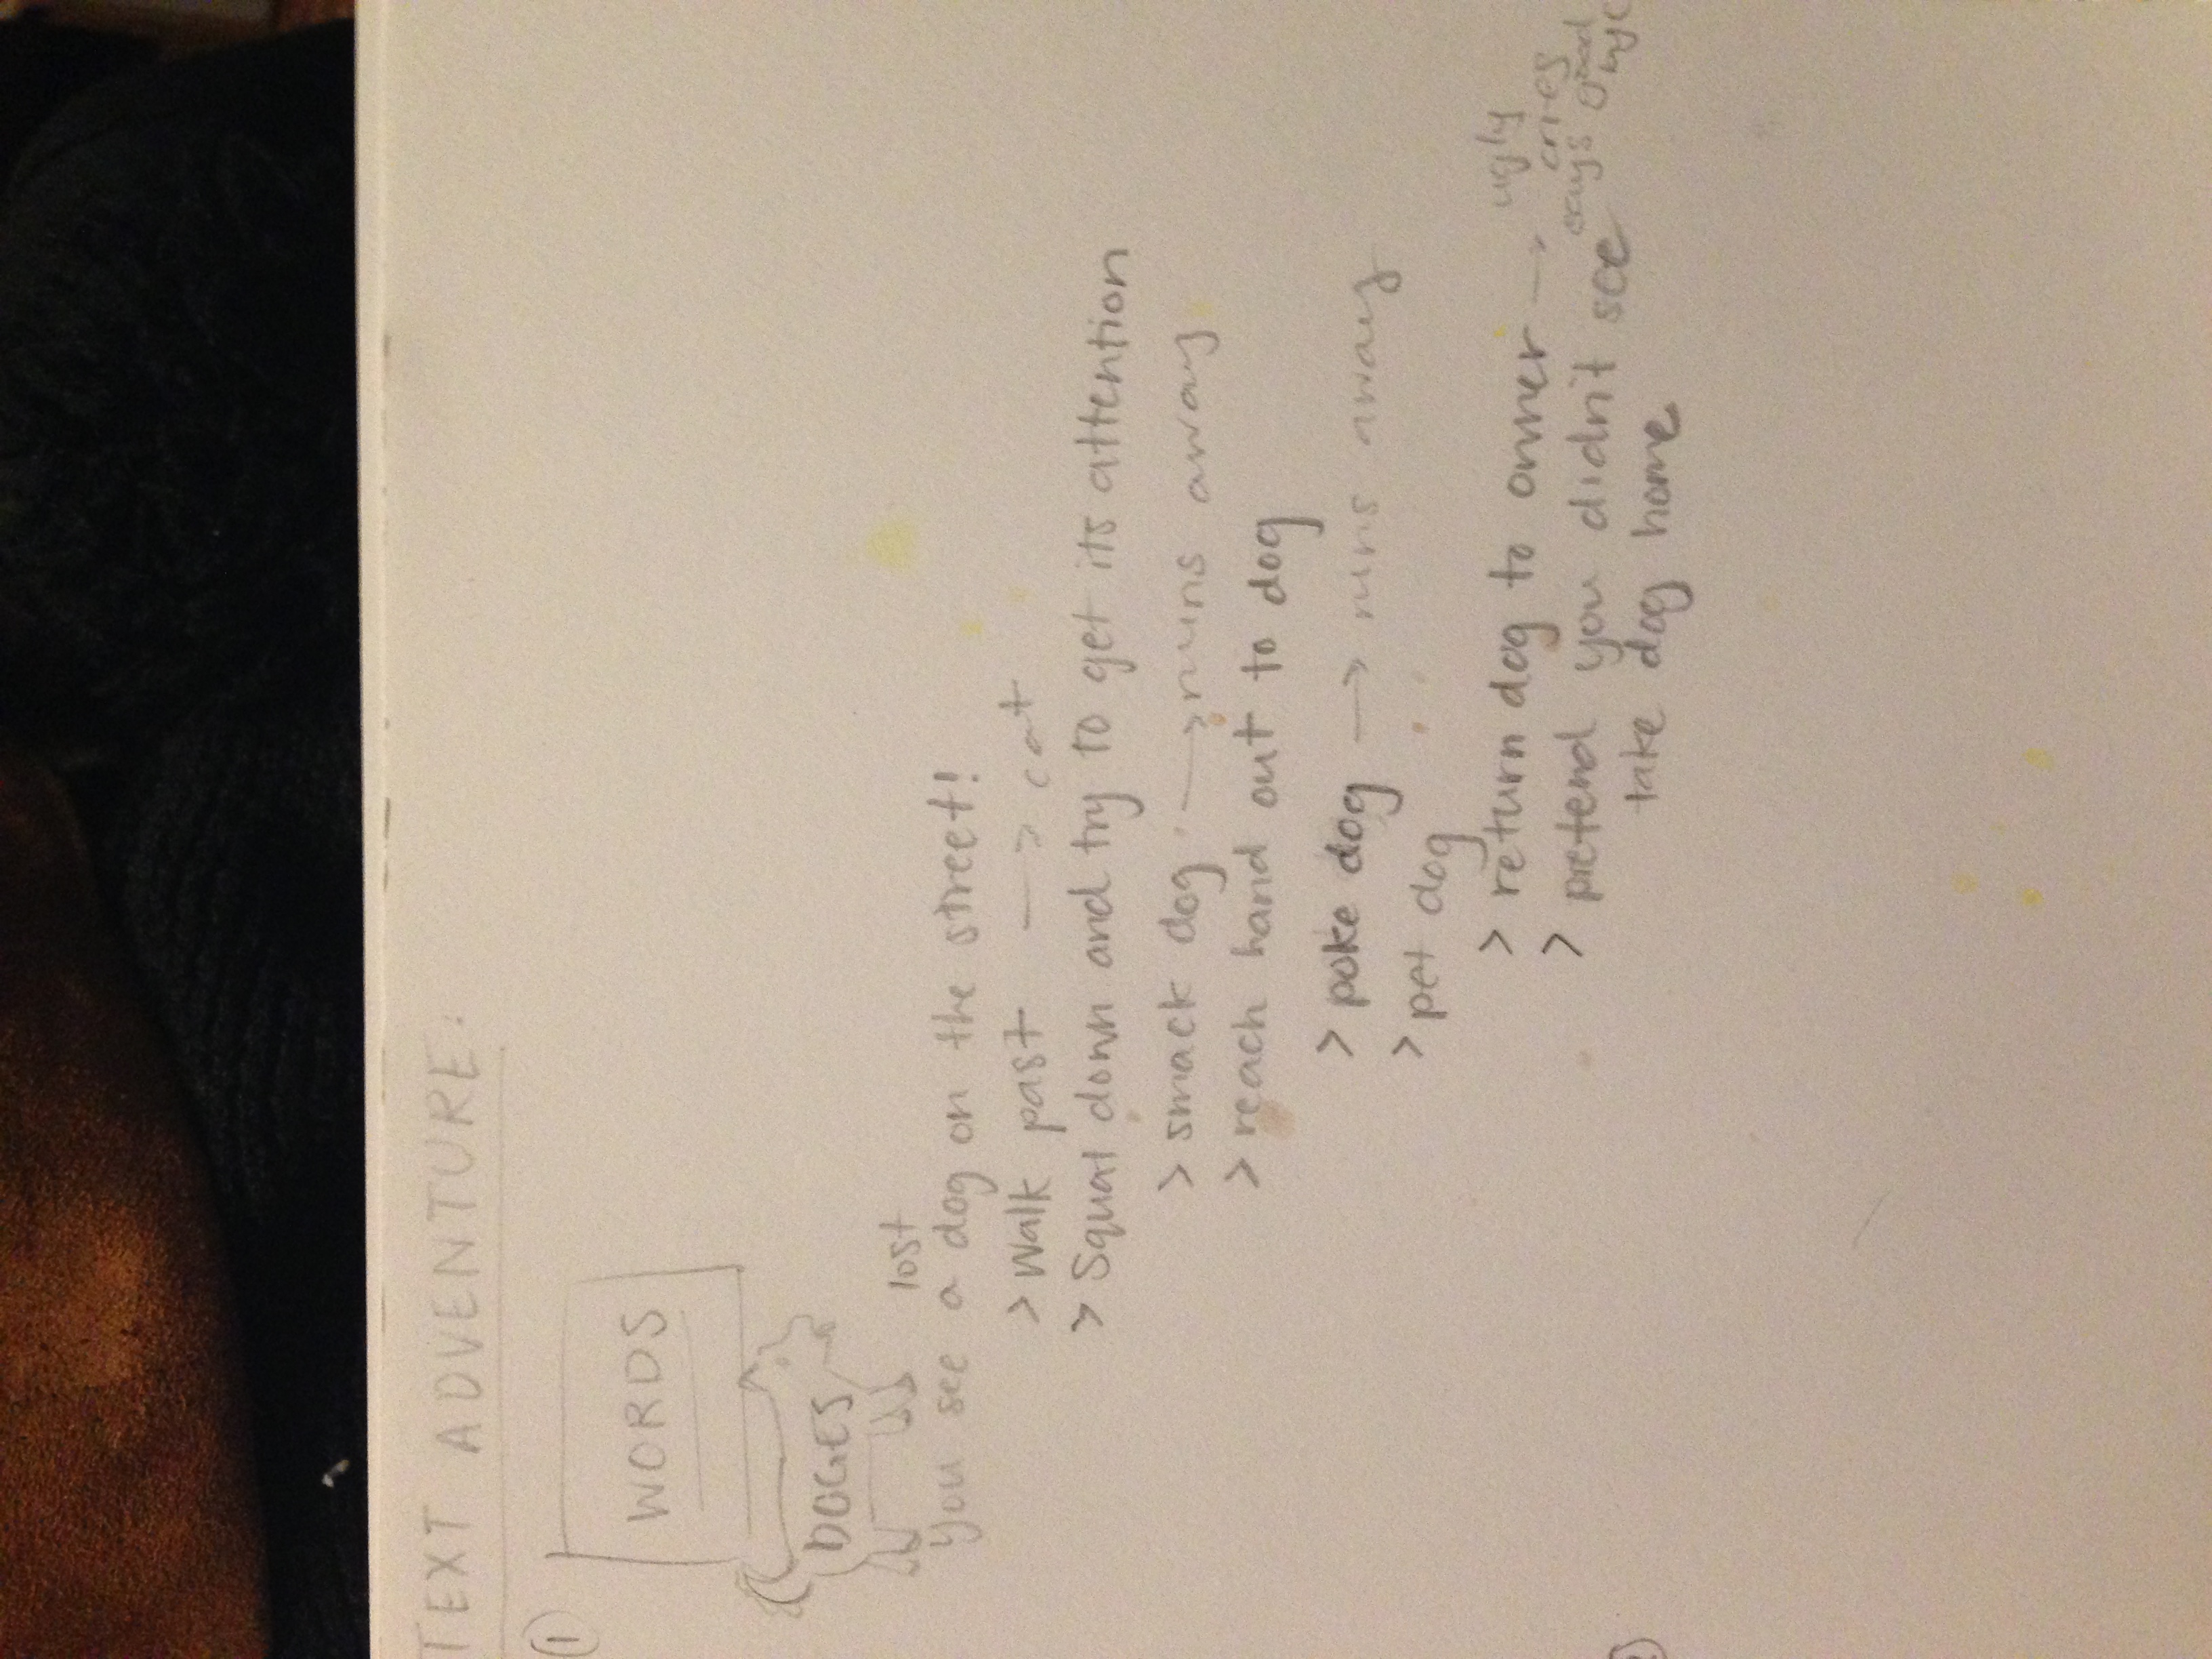 TEXT ADVENTURE:
①
WORDS
DOGES
lost
You see a dog on the street!
> Walk past —> cat
> Squat down and try to get its attention
> smack dog —> runs away
> reach hand out to dog
> poke dog —> runs away
> pet dog
> return dog to owner —> ugly
cries
says good
bye
> pretend you didn't see
take dog home